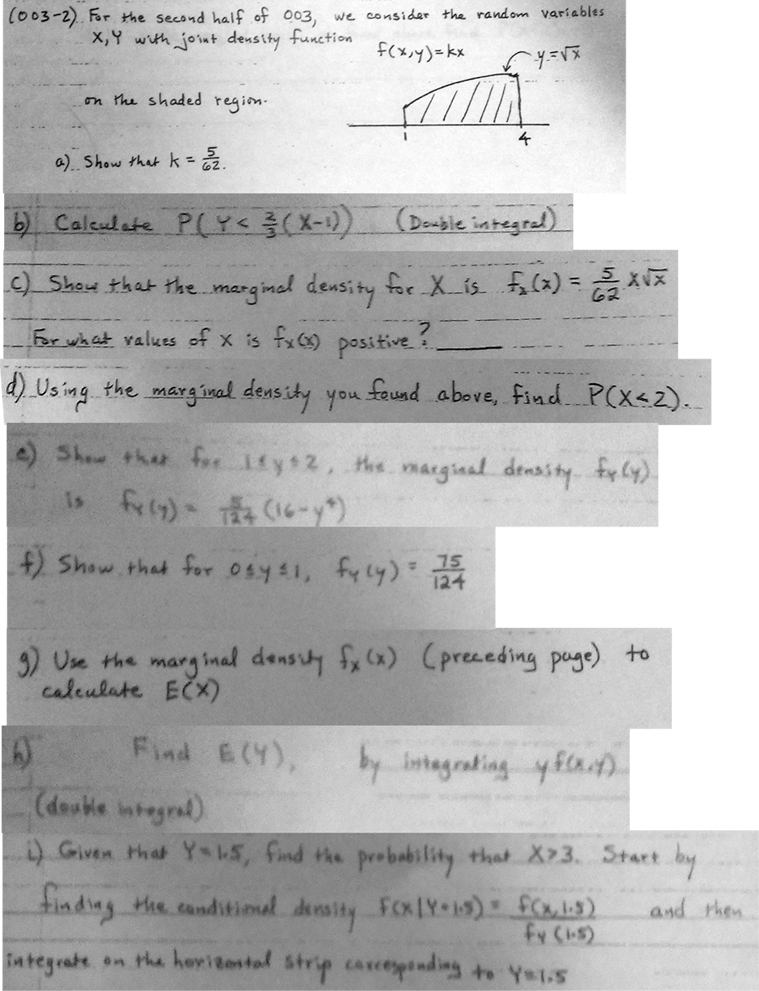 (003-2) For the second half of 003, we consider the random variables
X,Y with joint density function
f(x,y)=kx
y=√x
on the shaded region.
1 4
a) Show that k = 5/62.
b) Calculate P(Y < 2/3 (X-1)) (Double integral)
c) Show that the marginal density for X is fₓ(x) = 5/62 x√x
For what values of x is fx(x) positive?
d) Using the marginal density you found above, find P(X<2).
e) Show that for 1≤y≤2, the marginal density fY(y)
is fY(y) = 5/124 (16-y⁴)
f) Show that for 0≤y≤1, fY(y) = 75/124
g) Use the marginal density fx(x) (preceding page) to
calculate E(X)
h) Find E(Y), by integrating y f(x,y)
(double integral)
i) Given that Y=1.5, find the probability that X>3. Start by
finding the conditional density f(x|Y=1.5) = f(x,1.5)/fY(1.5) and then
integrate on the horizontal strip corresponding to Y=1.5